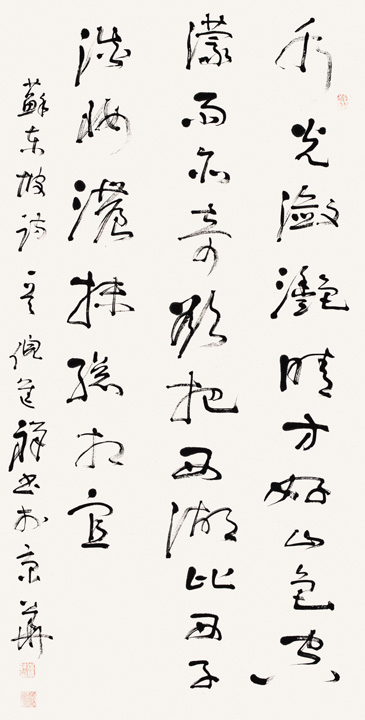 水光瀲灩晴方好山色空
濛雨亦奇欲把西湖比西子
淡妝濃抹總相宜
蘇东坡诗一首倪進祥书於京華